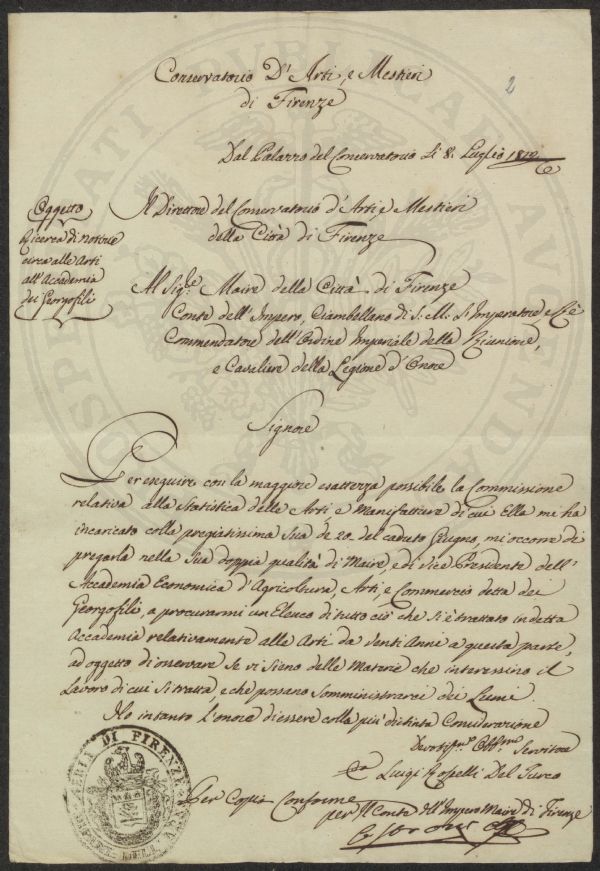 2
Conservatorio D'Arti, e Mestieri
di Firenze
Dal Palazzo del Conservatorio Li 8. Luglio 1812
Oggetto
Ricerca di notizie
circa alle Arti
all'Accademia
dei Georgofili
Il Direttore del Conservatorio d'Arti, e Mestieri
della Città di Firenze
Al Sigre. Maire della Città di Firenze
Conte dell'Impero, Ciambellano di S: M: L'Imperatore e Rè
Commendatore dell'Ordine Imperiale della Riunione,
e Cavaliere della Legione d'Onore
Signore
Per eseguire con la maggiore esattezza possibile la Commissione
relativa alla Statistica delle Arti, e Manifatture di cui Ella me ha
incaricato colla pregiatissima Sua de 20. del caduto Giugno, mi occorre di
pregarla nella Sua doppia qualità di Maire, e di Vice Presidente dell'
Accademia Economica d'Agricoltura, Arti, e Commercio detta dei
Georgofili, a procurarmi un Elenco di tutto ciò che si è trattato in detta
Accademia relativamente alle Arti da venti Anni a questa parte,
ad oggetto di osservare se vi sieno delle Materie che interessino il
Lavoro di cui si tratta, e che possano somministrarci dei Lumi.
Ho intanto l'onore di essere colla più distinta Considerazione
Servitore
Luigi Del Turco
Per Copia Conforme
per Il Conte dell'Impero Maire di Firenze
PROSPERITATI PUBLICAE AUGENDAE
MAIRIA DI FIRENZE